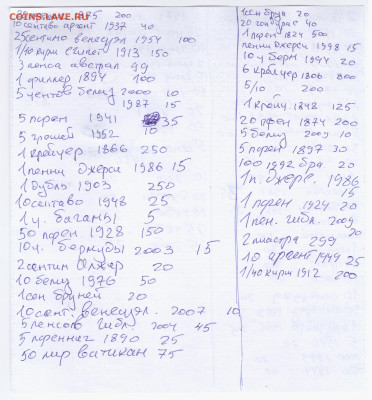 COINS.LAVKA.RU
1885 200
10 сентаво аргент 1937 40
25 сентимо венесуэл 1954 100
1/40 кирш Египет 1913 150
3 пенса австрал 99
1 филлер 1894 100
5 центов белиз 2000 10
1987 15
5 пфен 1941 35
5 грошей 1992 10
1 крейцер 1866 250
1 пенни Джерси 1986 15
1 дубль 1903 250
10 сентаво 1948 25
1 ц. багамы 5
50 пфен 1928 150
10 ц. бермуды 2003 15
2 сантим Алжир 20
10 белиз 1976 50
1 сен бруней 20
10 сент. венесуэл. 2007 10
5 пенсов гибл. 2004 45
5 пфенниг 1890 25
50 лир ватикан 75
1 сен брун 20
20 гондурас 40
1 пфен 1824 500
пенни джерси 1998 15
10 ц берм 1994 20
6 крейцер 1806 800
5/10 200
1 крейц. 1848 125
20 пфен 1874 200
5 белиз 2009 10
5 пфен 1897 30
100 1992 бра 20
1 п. джерс. 1986
15
1 пфен 1924 20
1 пен. гибл. 2009
20
2 пиастра 299
10 аргент 1949 25
1/40 кирш 1912 200